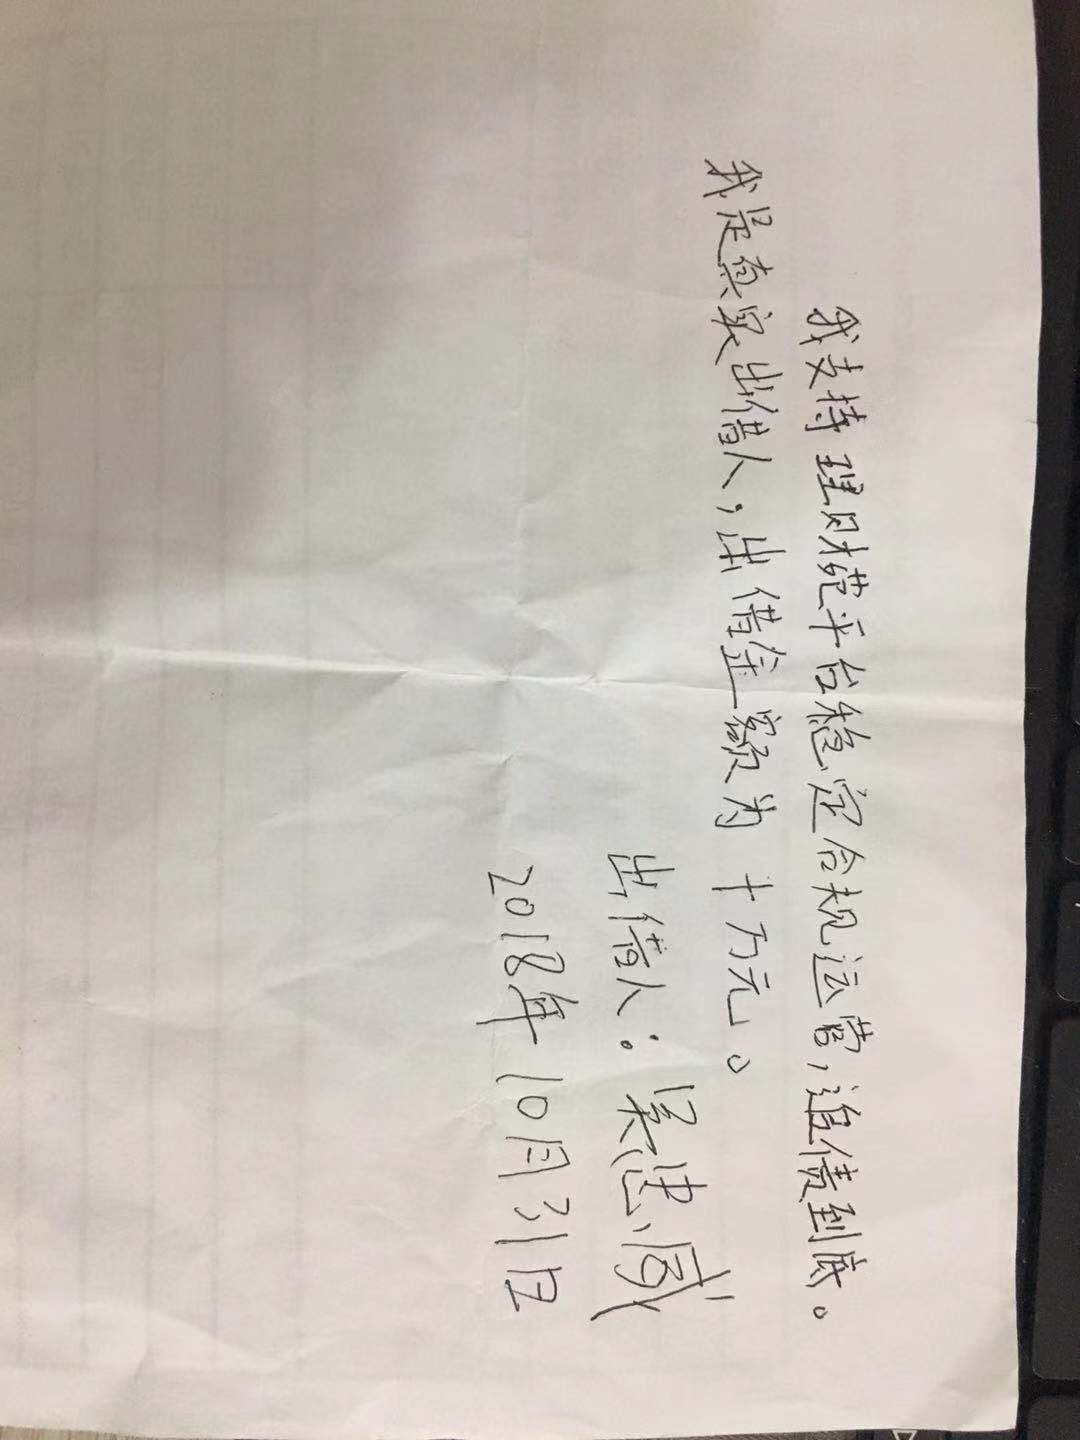 我支持理财范平台稳定合规运营,追债到底。
我是真实出借人,出借金额为十万元。
出借人:吴忠威
2018年10月31日